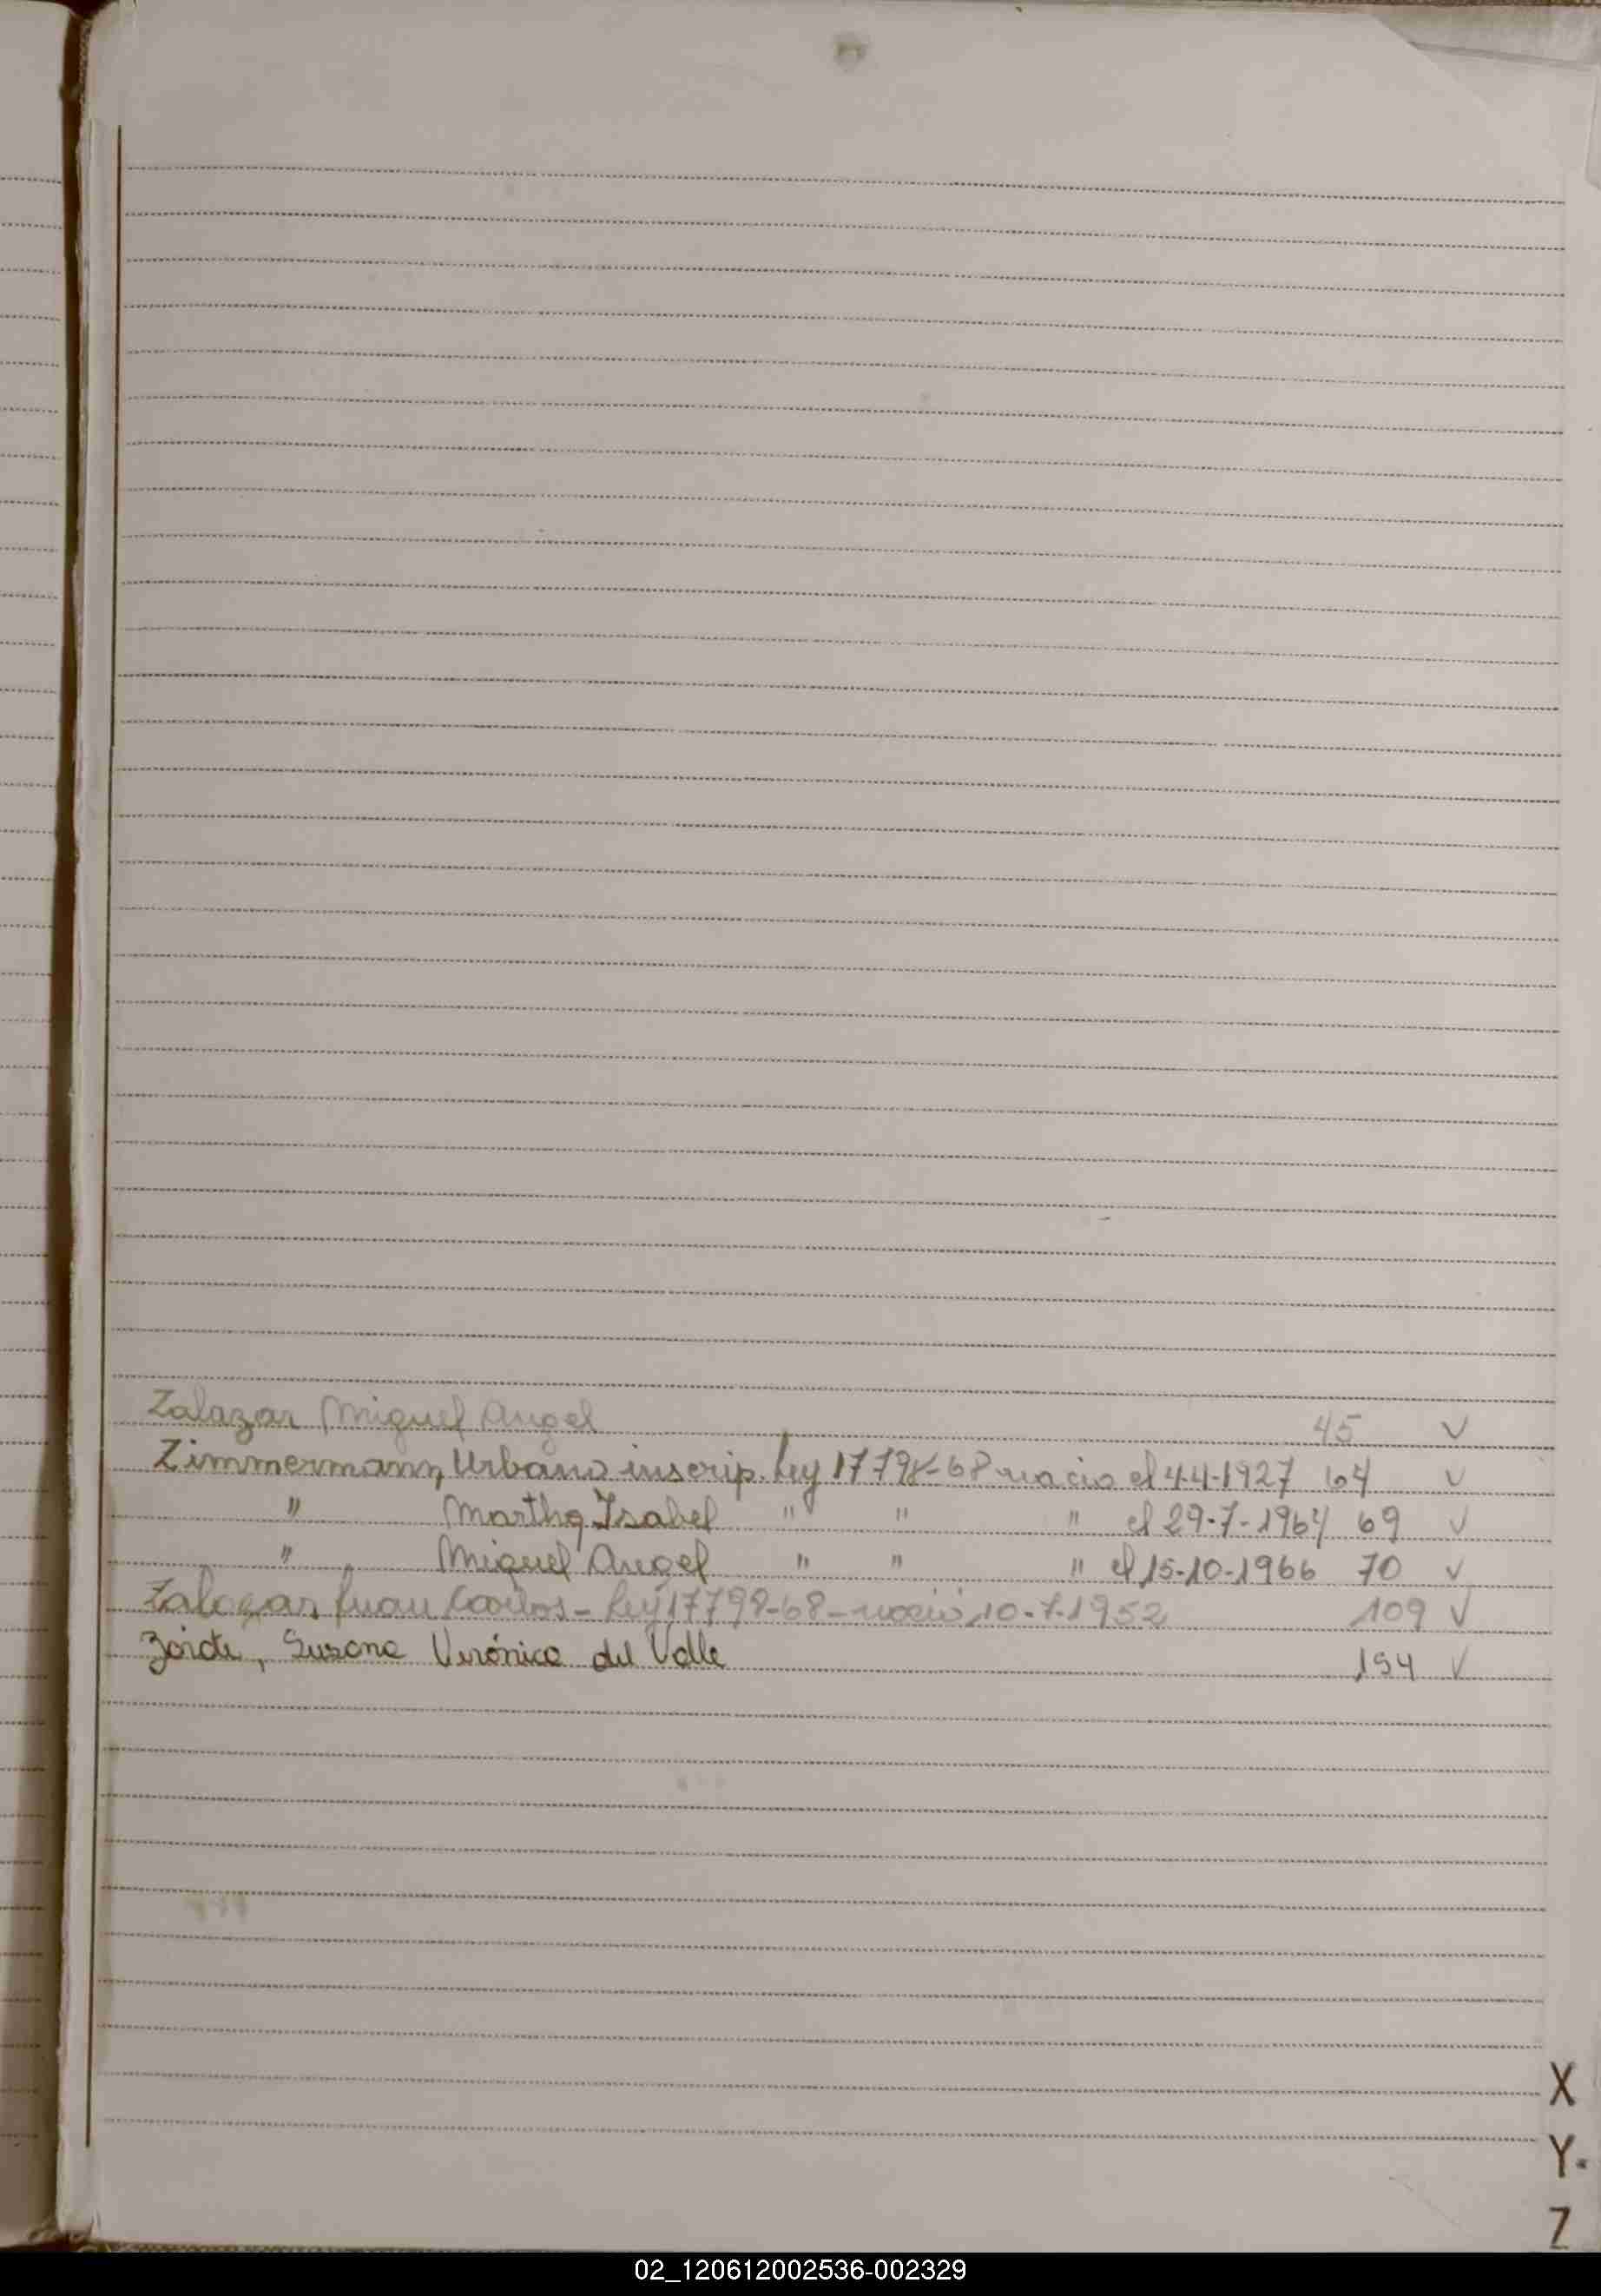 Zalazar Miguel Angel 45 ✓
Zimmermann, Urbano inscrip. Ley 17798-68 nacio el 4-4-1927 64 ✓
" Martha Isabel " " " el 29-7-1964 69 ✓
" Miguel Angel " " " el 15-10-1966 70 ✓
Zalazar Juan Carlos - Ley 17798-68 - nació 10-7-1952 109 ✓
Zárate, Susana Verónica del Valle 194 ✓
X
Y.
Z
02_120612002536-002329